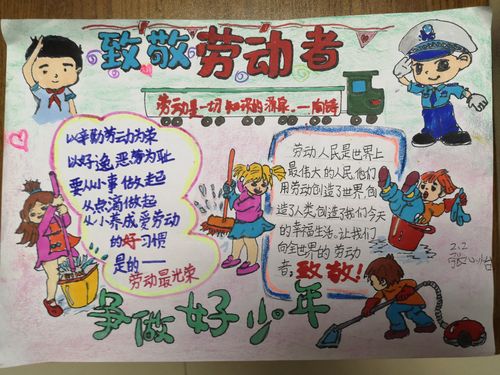 致敬劳动者
劳动是一切知识的源泉。——陶铸
以辛勤劳动为荣
以好逸恶劳为耻
要从小事做起
从点滴做起
从小养成爱劳动
的好习惯
是的——
劳动最光荣
劳动人民是世界上
最伟大的人民,他们
用劳动创造了世界,创
造了人类,创造了我们今天
的幸福生活。让我们
向全世界的劳动
者:致敬!
2.2
争做好少年